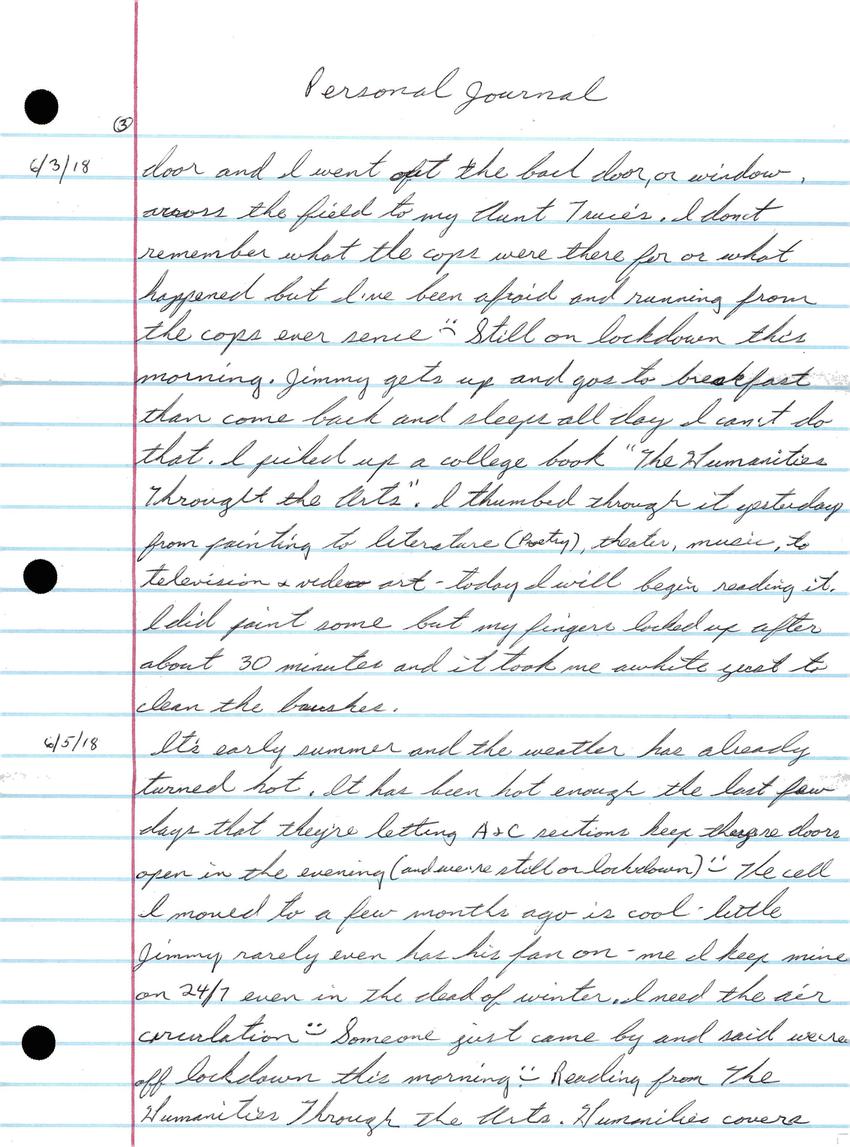 Personal Journal
③
6/3/18 door and I went out the back door, or window,
across the field to my Aunt Trucie's. I don't
remember what the cops were there for or what
happened but I've been afraid and running from
the cops ever sence :) Still on lockdown this
morning. Jimmy gets up and gos to breakfast
than come back and sleeps all day I can't do
that. I picked up a college book "The Humanities
Throught the Arts". I thumbed through it yesterday
from painting to literature (Poetry), theater, music, to
television & video art - today I will begin reading it.
I did paint some but my fingers locked up after
about 30 minutes and it took me awhile just to
clean the brushes.
6/5/18 It's early summer and the weather has already
turned hot. It has been hot enough the last few
days that they're letting A&C sections keep theyre doors
open in the evening (and we're still on lockdown) :) The cell
I moved to a few months ago is cool - little
Jimmy rarely even has his fan on - me I keep mine
on 24/7 even in the dead of winter. I need the air
circulation :) Someone just came by and said we're
off lockdown this morning :) Reading from The
Humanities Through the Arts. Humanities covers